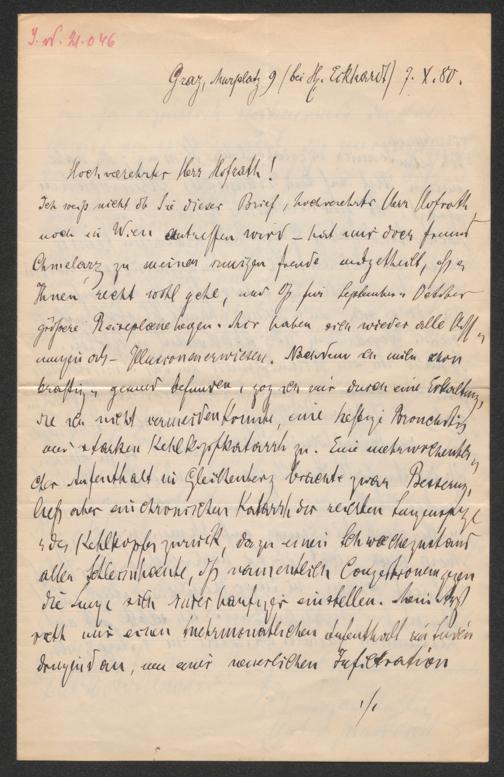 J. N. 21.046
Graz, Murplatz 9 (bei H. Eckhardt) 7. X. 80.
Hochverehrter Herr Hofrath!
Ich weiß nicht ob Sie dieser Brief, hochverehrter Herr Hofrath
noch in Wien antreffen wird – hat mir doch Freund
Chmelarz zu meiner innigen Freude mitgetheilt, daß es
Ihnen recht wohl gehe, und Sie für September u. October
größere Reisepläne hegen. Mir haben sich wieder alle Hoff-
nungen als Illusionen erwiesen. Nachdem ich mich schon
kräftig u. gesund befunden, zog ich mir durch eine Erkältung,
die ich nicht vermeiden konnte, eine heftige Bronchitis
und starken Kehlkopfkatarrh zu. Eine mehrwöchentli-
cher Aufenthalt in Gleichenberg brachte zwar Besserung,
ließ aber einen chronischen Katarrh der rechten Lungenspitze
u. des Kehlkopfes zurück, dazu einen Schwächezustand
aller Schleimhäute, daß namentlich Congestionen gegen
die Lunge sich häufiger einstellen. Mein Arzt
räth mir einen mehrmonatlichen Aufenthalt im Süden
dringend an, um einer neuerlichen Infiltration
./.